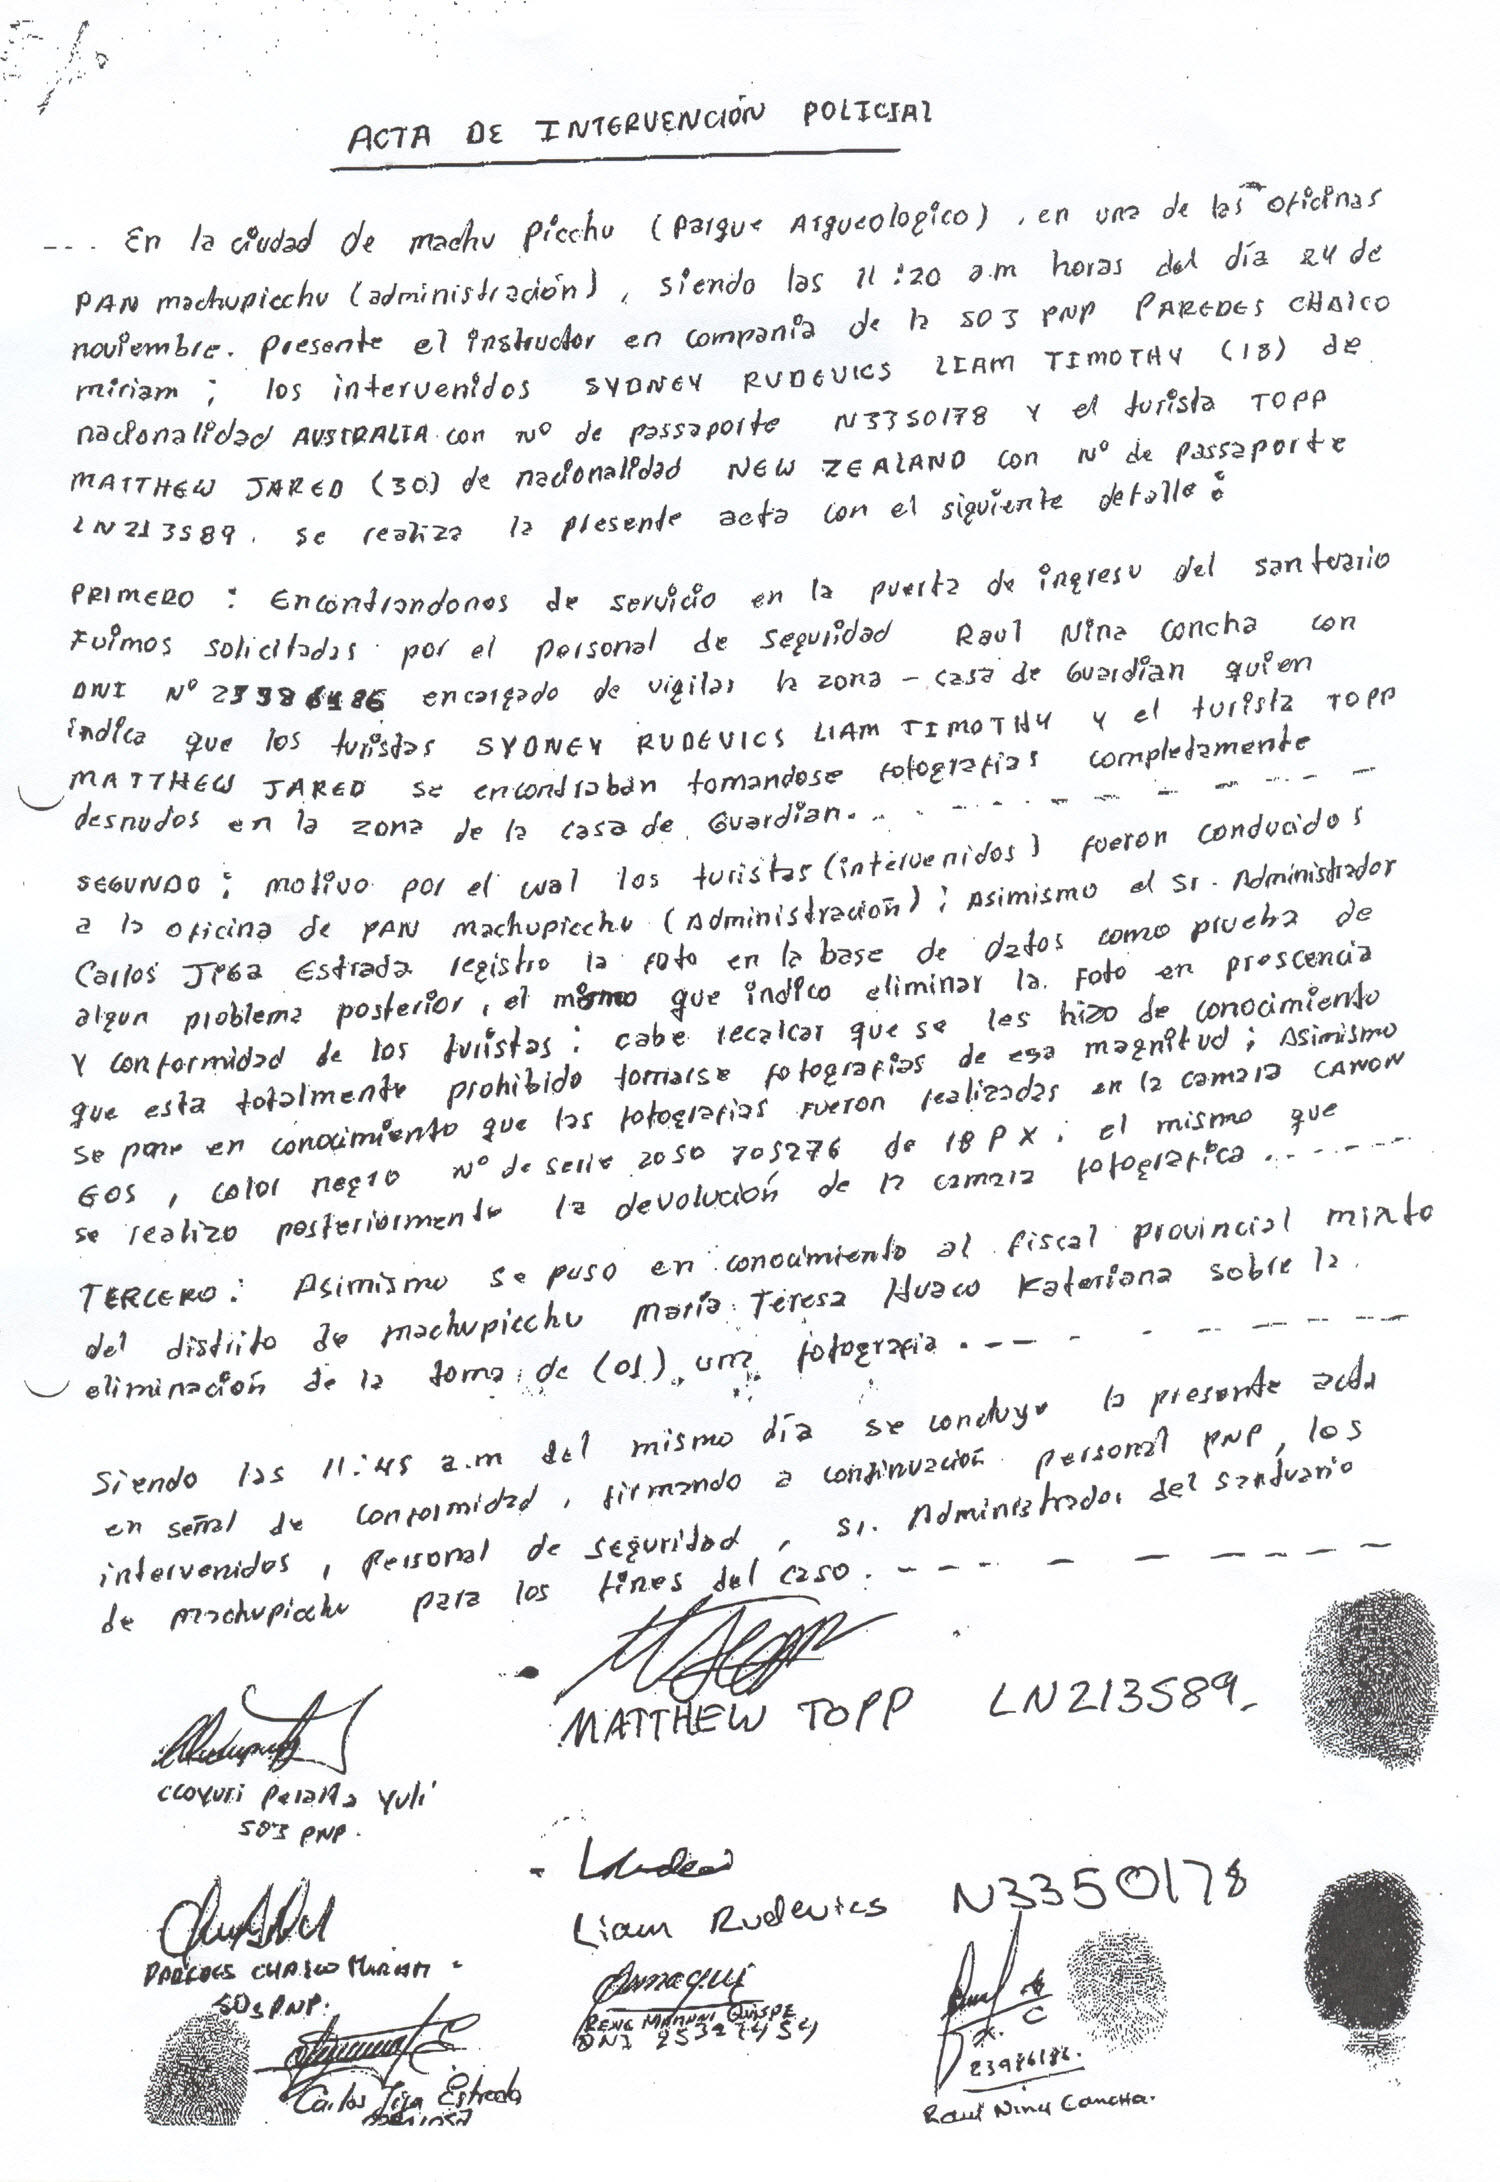 ACTA DE INTERVENCIÓN POLICIAL
--- En la ciudad de machu picchu (parque Arqueologico), en una de las oficinas
PAN machupicchu (administración), siendo las 11:20 a.m horas del día 24 de
noviembre. presente el instructor en compania de la SO3 PNP PAREDES CHALCO
miriam; los intervenidos SYDNEY RUDEVICS LIAM TIMOTHY (18) de
nacionalidad AUSTRALIA con Nº de passaporte N3350178 y el turista TOPP
MATTHEW JARED (30) de nacionalidad NEW ZEALAND con Nº de passaporte
LN213589. se realiza la presente acta con el siguiente detalle:
PRIMERO: Encontrandonos de servicio en la puerta de ingreso del santuario
Fuimos solicitadas por el personal de seguridad Raul Nina Concha con
DNI Nº encargado de vigilar la zona - casa de Guardian quien
indica que los turistas SYDNEY RUDEVICS LIAM TIMOTHY y el turista TOPP
MATTHEW JARED se encontraban tomandose fotografias completamente
desnudos en la zona de la casa de Guardian. - - - - - - - -
SEGUNDO: motivo por el cual los turistas (intervenidos) fueron conducidos
a la oficina de PAN machupicchu (Administración); Asimismo el Sr. Administrador
Carlos Estrada registro la foto en la base de datos como prueba de
algun problema posterior, el mismo que indico eliminar la foto en prescencia
y conformidad de los turistas; cabe recalcar que se les hizo de conocimiento
que esta totalmente prohibido tomarse fotografias de esa magnitud; Asimismo
se pone en conocimiento que las fotografias fueron realizadas en la camara CANON
GOS, color negro Nº de serie 2050 705276 de 18 PX; el mismo que
se realizo posteriormente la devolución de la camara fotografica. - - - - -
TERCERO: Asimismo se puso en conocimiento al fiscal provincial mixto
del distrito de machupicchu Maria Teresa Huaco Kateriana sobre la
eliminación de la toma de (01) una fotografia. - - - - - - - - -
Siendo las 11:45 a.m del mismo día se concluye la presente acta
en señal de conformidad, firmando a continuación personal PNP, los
intervenidos, personal de seguridad, sr. Administrador del santuario
de machupicchu para los fines del caso. - - - - - - - - -
MATTHEW TOPP LN213589
Ccoyuri Peralta Yuli
SO3 PNP.
Liam Rudevics N3350178
PAREDES CHALCO MIRIAM
SO3 PNP.
RENE MAMANI QUISPE
DNI
Carlos Estrada
Raul Nina Concha.